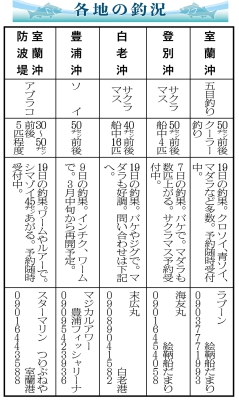 各地の釣況
室蘭沖
五目釣り
50㌢前後
クーラー
釣り
19日の釣果。クロソイ、青ソイ、
マダラなど多数。予約随時受付
中。
ラブーン
絵鞆船だまり
09037771993
登別沖
サクラ
マス
50㌢前後
船中4匹
7日の釣果。バケで。マダラも
数匹上がる。サクラマス予約受
付中。
海友丸
絵鞆船だまり
09016454058
白老沖
サクラ
マス
40㌢前後
船中16匹
19日の釣果。バケやジグで。マ
ダラも好調。問い合わせは下記
へ。
末広丸
白老港
09089041582
豊浦沖
ソイ
50㌢前後
9日の釣果。インチク、ワーム
で。3月中旬から再開予定。
マジカルアワー
豊浦フィッシャリーナ
09095423936
室蘭沖
防波堤
アブラコ
30～50㌢
前後
5匹程度
19日の釣果。ワームやルアーで。
シマソイ45㌢あがる。予約随時
受付中。
スターマリン つりぶねや
室蘭港
09016443588